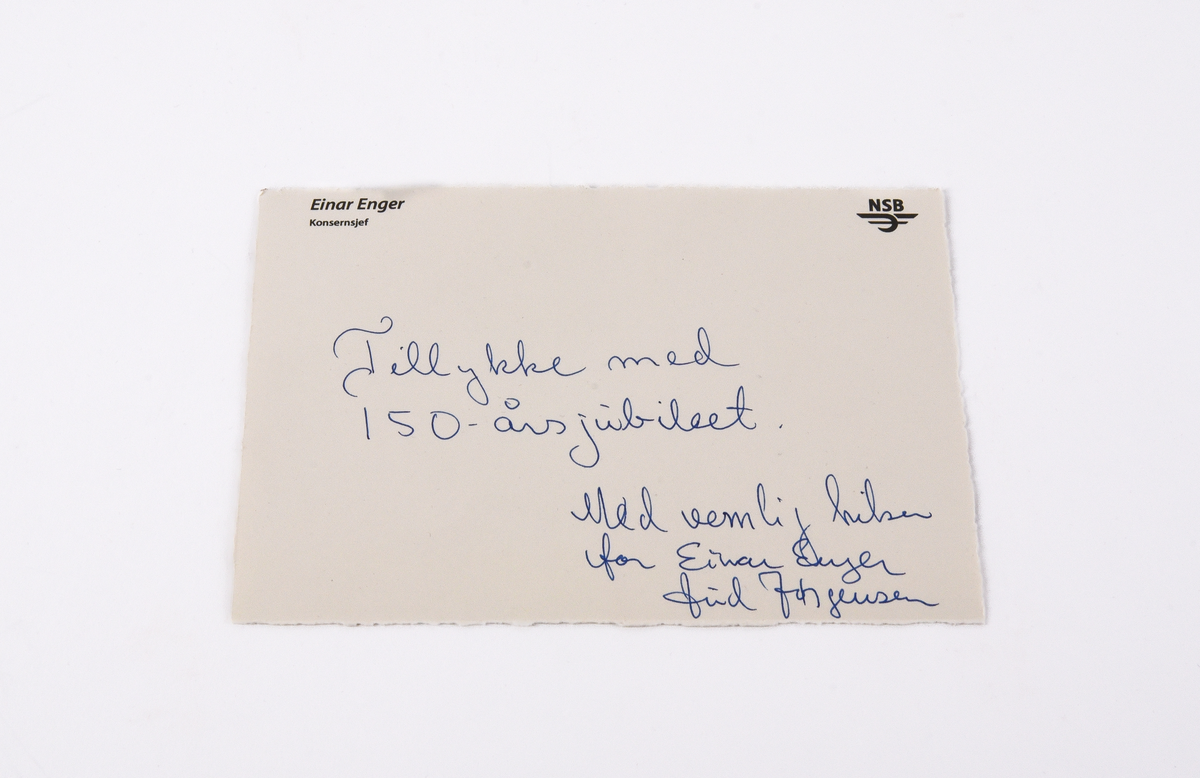 Einar Enger
Konsernsjef
NSB
Tillykke med
150-årsjubileet.
Med vennlig hilsen
for Einar Enger
Jørgensen